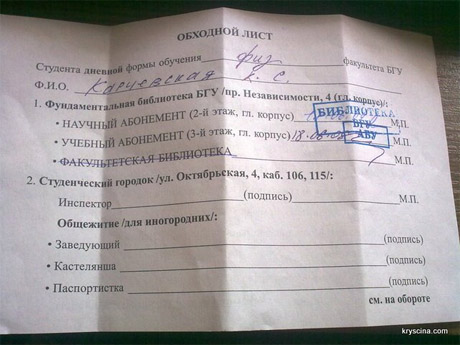 ОБХОДНОЙ ЛИСТ
Студента дневной формы обучения физ факультета БГУ
Ф.И.О. К. С.
1. Фундаментальная библиотека БГУ /пр. Независимости, 4 (гл. корпус)/:
• НАУЧНЫЙ АБОНЕМЕНТ (2-й этаж, гл. корпус) М.П.
• УЧЕБНЫЙ АБОНЕМЕНТ (3-й этаж, гл. корпус) М.П.
БИБЛИОТЕКА
БГУ
АБУ
• ФАКУЛЬТЕТСКАЯ БИБЛИОТЕКА М.П.
2. Студенческий городок /ул. Октябрьская, 4, каб. 106, 115/:
Инспектор (подпись) М.П.
Общежитие /для иногородних/:
• Заведующий (подпись)
• Кастелянша (подпись)
• Паспортистка (подпись)
см. на обороте
kryscina.com